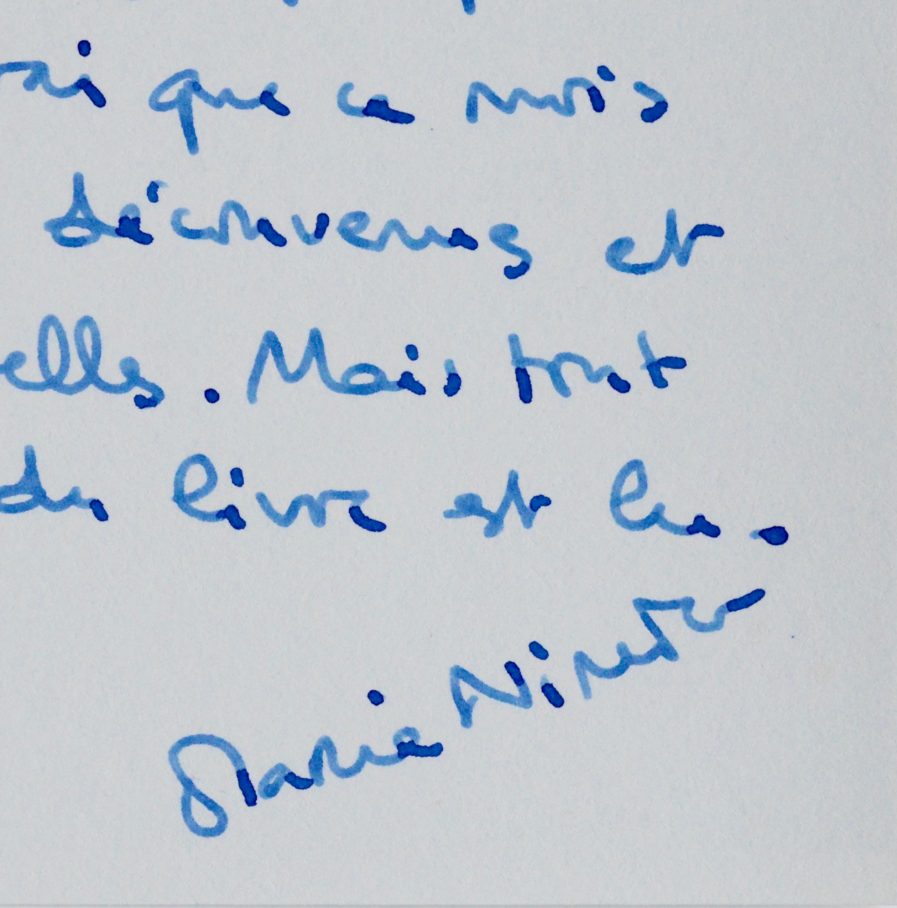 rai que ce mois
découvertes et
elles. Mais tout
du livre est lu.
Maria